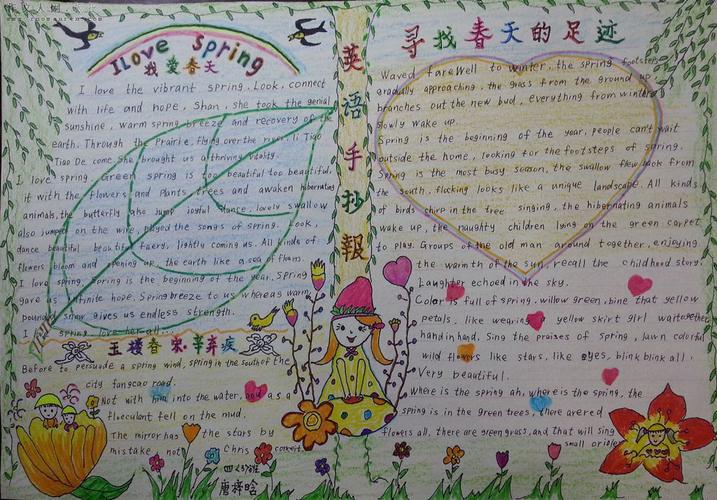 I Love Spring
我爱春天
I love the vibrant spring. Look, connect
with life and hope, Shan, she took the genial
sunshine, warm spring breeze and recovery of the
earth. Through the Prairie, flying over the river, li Tiao
Tiao De come. She brought us a thriving vitality.
I love spring. Green spring is too beautiful too beautiful,
it with the flowers and Plants, trees and awaken hibernating
animals, the butterfly also jump joyful dance, lovely swallow
also jumped on the wire, played the songs of spring. Look,
dance beautiful beautiful faery, lightly coming us. All kinds of
flowers bloom and opening up, the earth like a sea of flowers.
I love spring, Spring is the beginning of the year. Spring
gave us infinite hope. Spring breeze to us whereas warm,
pounded snow, gives us endless strength.
I spring, love her all
玉楼春 宋·辛弃疾
Before to persuade a spring wind, spring in the south of the
city fangcao road.
Not with him into the water, and as a
flucculent fell on the mud.
The mirror has the stars by
mistake, not Chris conceit.
英语手抄報
寻找春天的足迹
Waved fareWell to winter, the spring footsteps
gradually approaching, the grass from the ground up,
branches out the new bud, everything from winter
slowly wake up.
Spring is the beginning of the year, people can't wait
outside the home, looking for the footsteps of spring.
Spring is the most busy season, the swallow flew back from
the south, flocking looks like a unique landscape. All kinds
of birds chirp in the tree singing, the hibernating animals
wake up, the naughty children lying on the green carpet
to play. Groups of the old man around together, enjoying
the warmth of the sun, recall the childhood story.
Laughter echoed in the sky.
Color is full of spring. willow green, bine that yellow
petals, like wearing yellow skirt girl wait together
hand in hand. Sing the praises of spring, lawn colorful
wild flowers like stars, like eyes, blink blink all.
Very beautiful.
where is the spring ah, where is the spring, the
spring is in the green trees, there are red
flowers all, there are green grass, and that will sing
small orioles